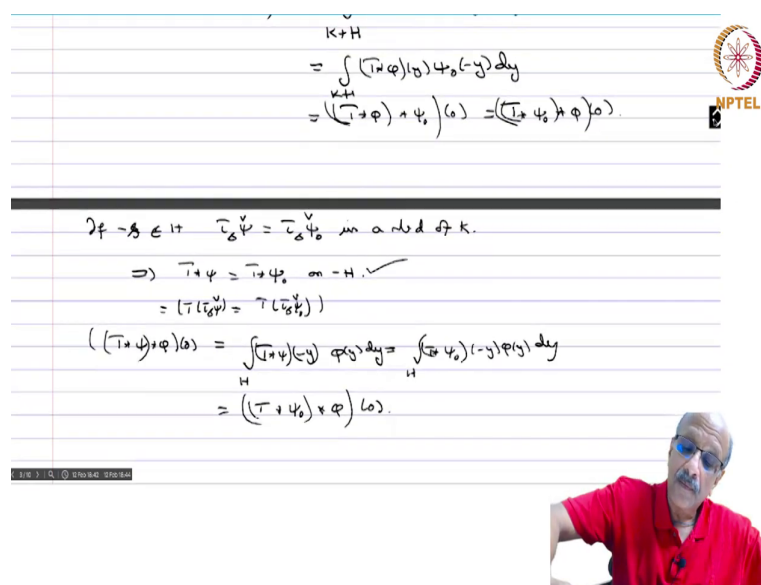 K+H
= ∫ (T*φ)(y) ψ₀(-y) dy
K+H
= ((T*φ) * ψ₀)(0) = ((T*ψ₀)*φ)(0).
NPTEL
If -s ∈ H τₛψ̌ = τₛψ̌₀ in a nbd of K.
⇒) T*ψ = T*ψ₀ on -H. ✓
= (T(τₛψ̌) = T(τₛψ̌₀))
((T*ψ)*φ)(0) = ∫(T*ψ)(-y) φ(y) dy = ∫(T*ψ₀)(-y) φ(y) dy
H H
= ((T*ψ₀)*φ)(0).
3/10 12 Feb 18:43 12 Feb 18:44